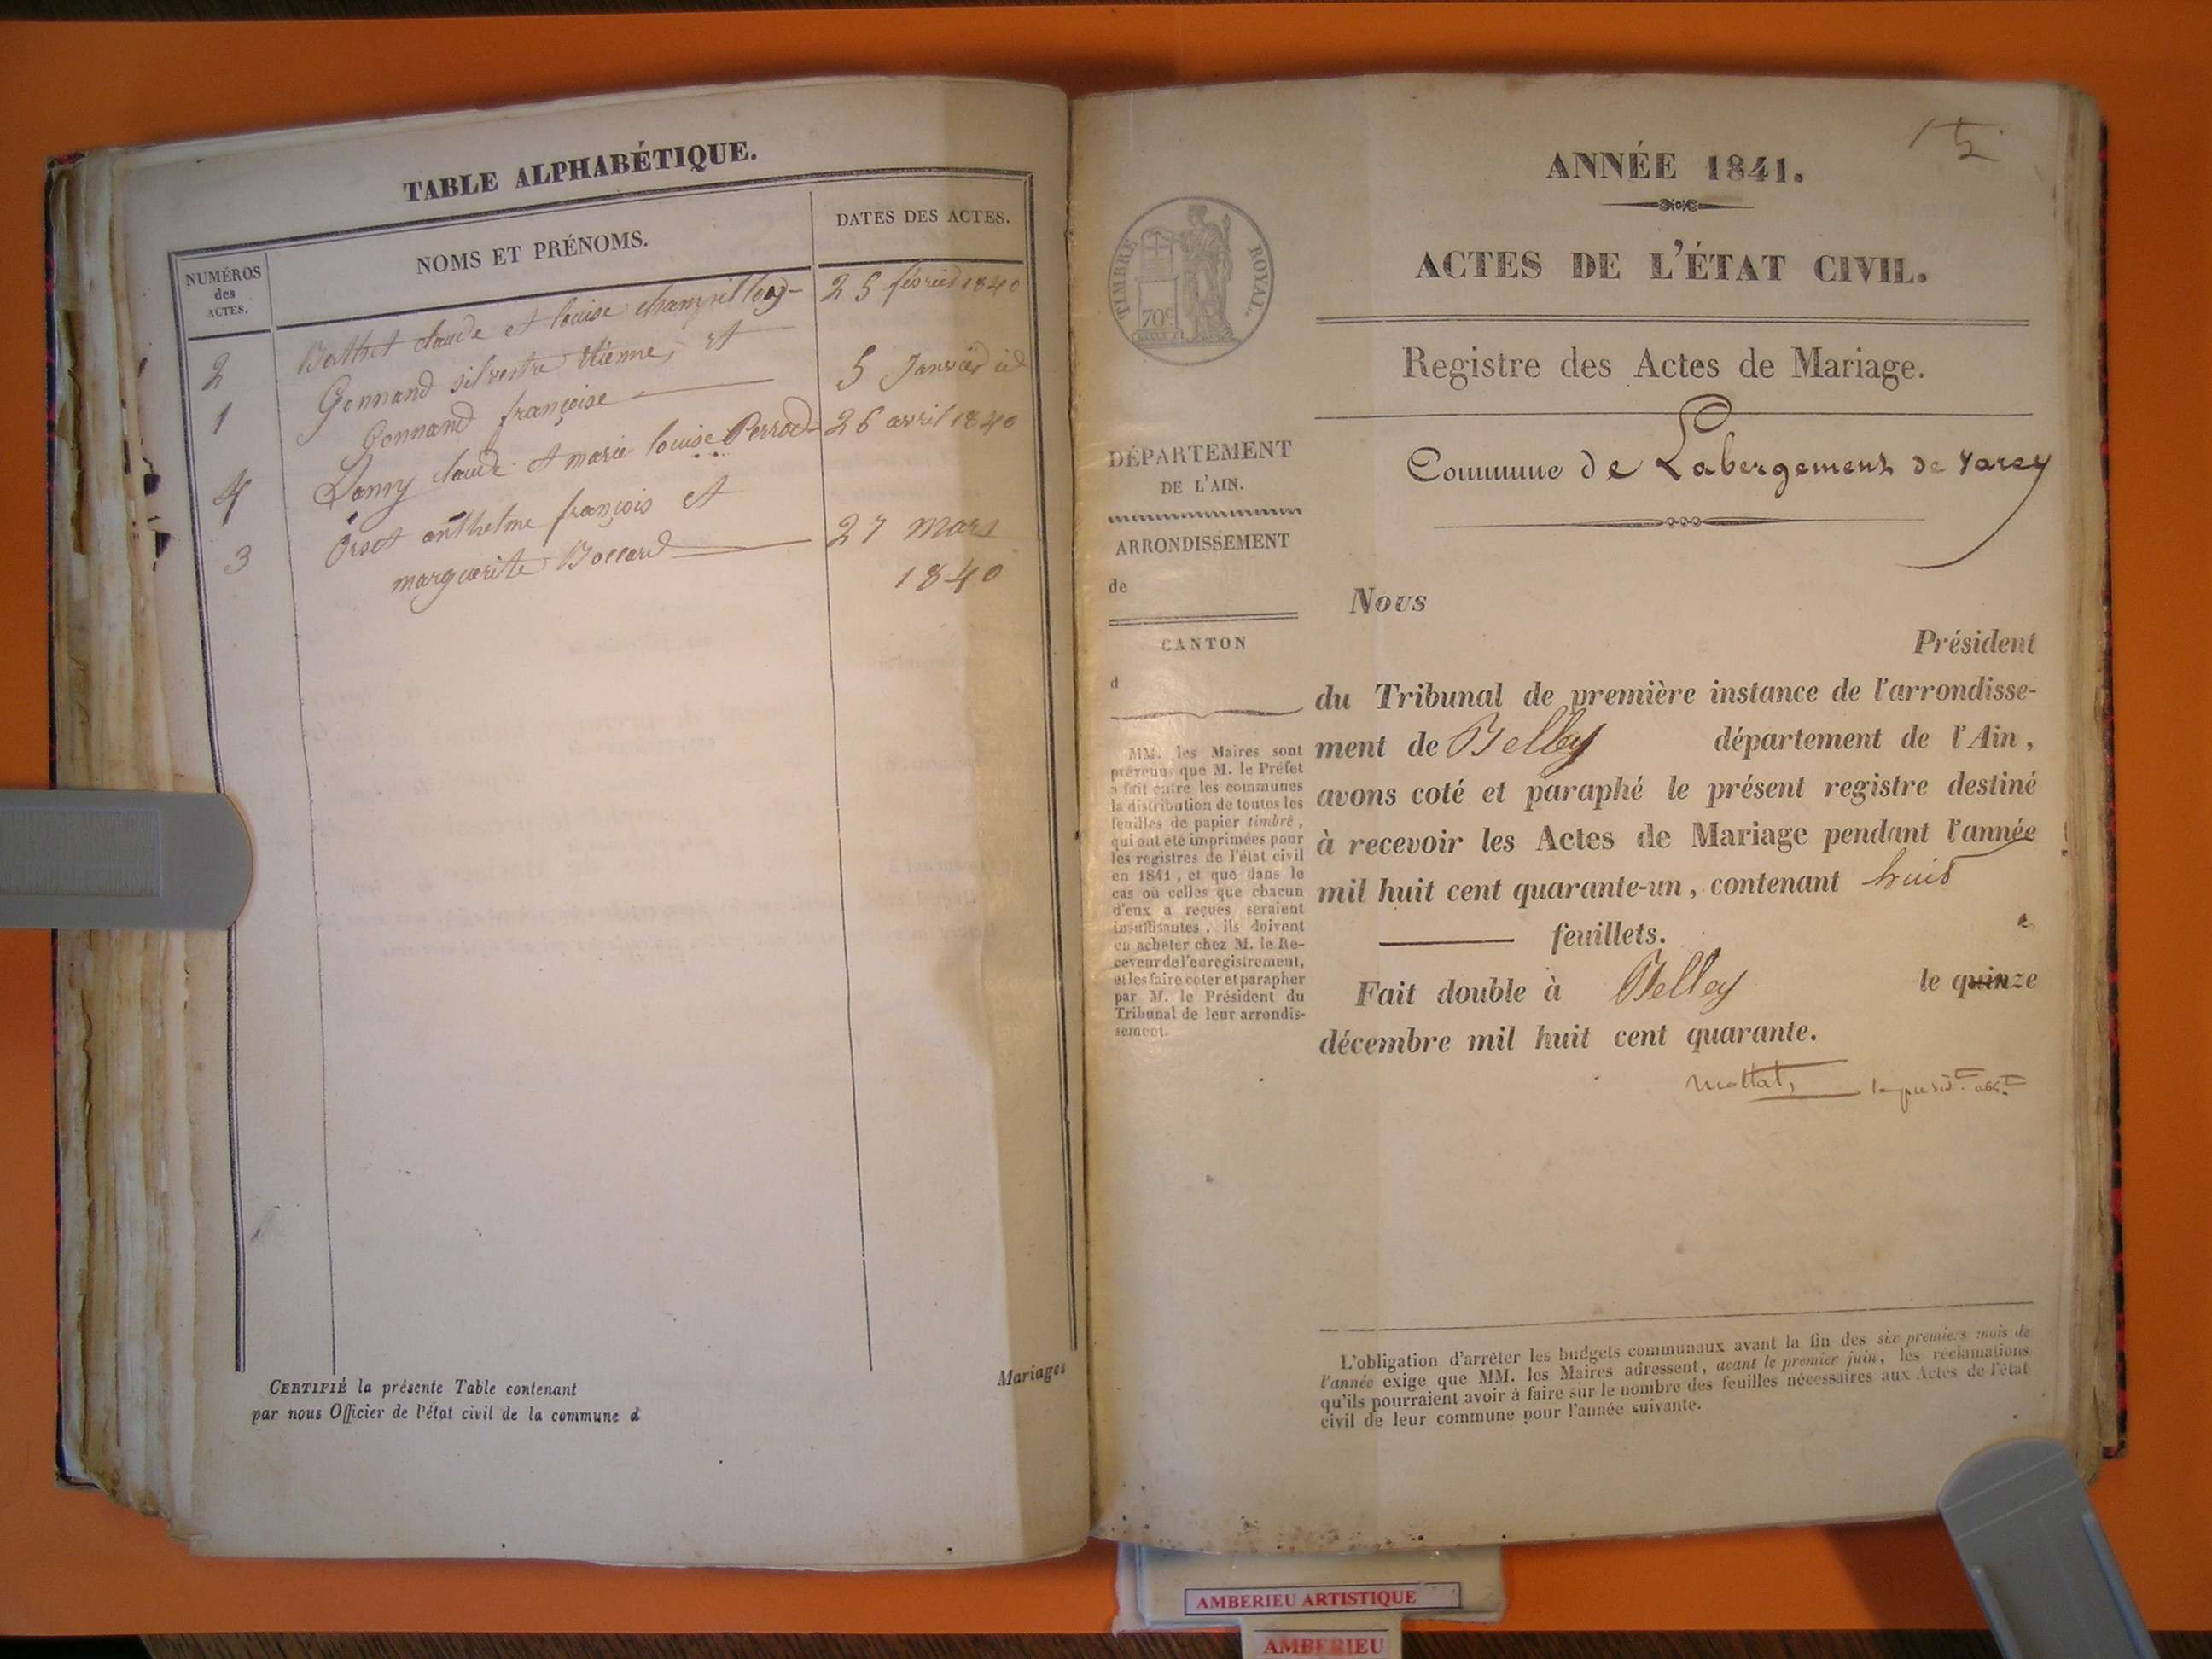 TABLE ALPHABÉTIQUE.
NUMÉROS
des
ACTES.
NOMS ET PRÉNOMS.
DATES DES ACTES.
2 Berthet claude et louise 25 février 1840
1 Gonnand silvestre étienne, et
Gonnand françoise 5 Janvier id
4 claude et marie louise Perrod 26 avril 1840
3 Orset anthelme françois et
marguerite Boccard 27 mars
1840
CERTIFIÉ la présente Table contenant Mariages
par nous Officier de l'état civil de la commune d
ANNÉE 1841.
ACTES DE L'ÉTAT CIVIL.
TIMBRE ROYAL.
70c
Registre des Actes de Mariage.
Commune de Labergement de varey
DÉPARTEMENT
DE L'AIN.
ARRONDISSEMENT
de
CANTON
d
MM. les Maires sont
prévenus que M. le Préfet
a fait entre les communes
la distribution de toutes les
feuilles de papier timbré,
qui ont été imprimées pour
les registres de l'état civil
en 1841, et que dans le
cas où celles que chacun
d'eux a reçues seraient
insuffisantes, ils doivent
en acheter chez M. le Re-
ceveur de l'enregistrement,
et les faire coter et parapher
par M. le Président du
Tribunal de leur arrondis-
sement.
Nous
Président
du Tribunal de première instance de l'arrondisse-
ment de Belley département de l'Ain,
avons coté et paraphé le présent registre destiné
à recevoir les Actes de Mariage pendant l'année
mil huit cent quarante-un, contenant huit
feuillets.
Fait double à Belley le quinze
décembre mil huit cent quarante.
L'obligation d'arrêter les budgets communaux avant la fin des six premiers mois de
l'année exige que MM. les Maires adressent, avant le premier juin, les réclamations
qu'ils pourraient avoir à faire sur le nombre des feuilles nécessaires aux Actes de l'état
civil de leur commune pour l'année suivante.
AMBERIEU ARTISTIQUE
AMBERIEU